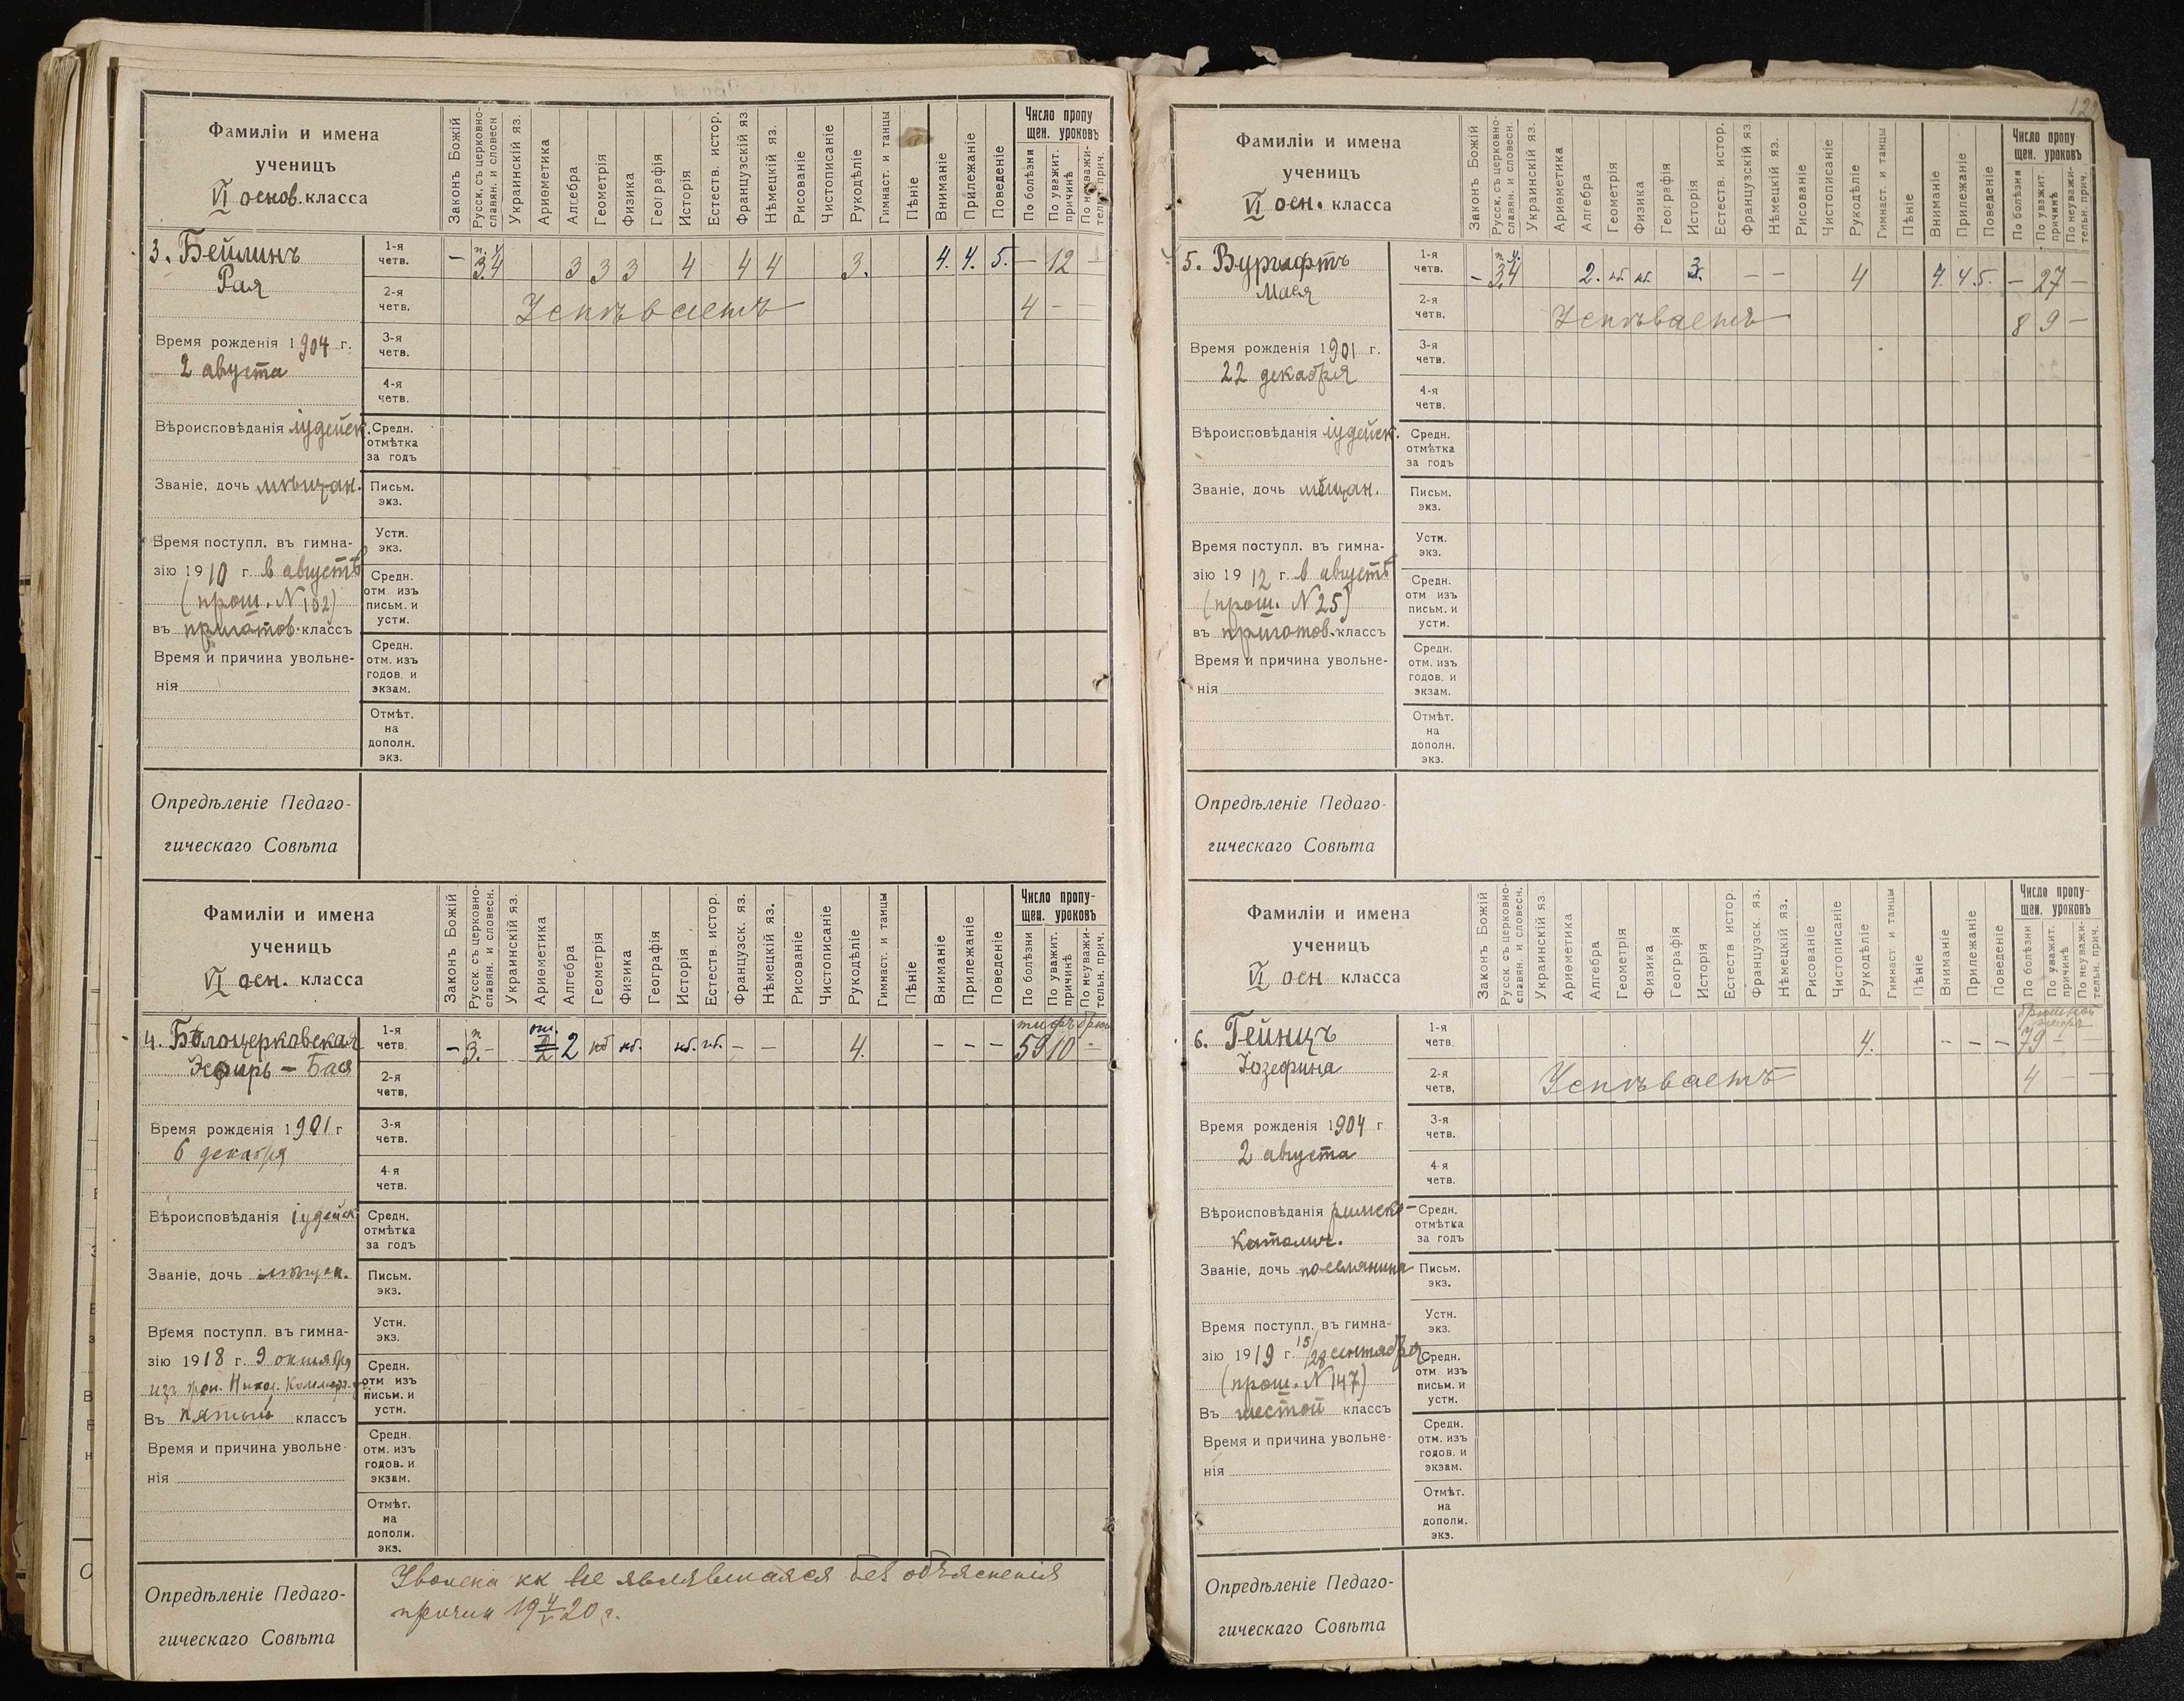 Фамиліи и имена
ученицъ
VI основ. класса
Законъ Божій
Русск. съ церковно-
славян. и словесн
Украинскій яз.
Ариѳметика
Алгебра
Геометрія
Физика
Географія
Исторія
Естеств. истор.
Французскій яз.
Нѣмецкій яз.
Рисованіе
Чистописаніе
Рукодѣліе
Гимнаст. и танцы
Пѣніе
Вниманіе
Прилежаніе
Поведеніе
Число пропу
щен. уроковъ
По болѣзни
По уважит.
причинѣ
По неуважи-
тельн. прич.
3. Бейлинъ
Рая
1-я
четв.
– 3 4 3 3 3 4 4 4 3. 4. 4. 5. – 12 –
2-я
четв.
Успѣваетъ 4 –
Время рожденія 1904 г.
2 августа
3-я
четв.
4-я
четв.
Вѣроисповѣданія іудейск.
Средн.
отмѣтка
за годъ
Званіе, дочь мѣщан.
Письм.
экз.
Время поступл. въ гимна-
зію 1910 г. в августѣ
(прош. N 102)
въ приготов. классъ
Устн.
экз.
Средн.
отм. изъ
письм. и
устн.
Время и причина увольне-
нія
Средн.
отм. изъ
годов. и
экзам.
Отмѣт.
на
дополн.
экз.
Опредѣленіе Педаго-
гическаго Совѣта
Фамиліи и имена
ученицъ
VI осн. класса
Законъ Божій
Русск. съ церковно-
славян. и словесн.
Украинскій яз.
Ариѳметика
Алгебра
Геометрія
Физика
Географія
Исторія
Естеств. истор.
Французск. яз.
Нѣмецкій яз.
Рисованіе
Чистописаніе
Рукодѣліе
Гимнаст. и танцы
Пѣніе
Вниманіе
Прилежаніе
Поведеніе
Число пропу-
щен. уроковъ
По болѣзни
По уважит.
причинѣ
По неуважи-
тельн. прич.
4. Бѣлоцерковская
Эсфирь – Бася
1-я
четв.
– 3. – 2 2 нб нб. нб. нб. – – 4. – – – 59 10 –
2-я
четв.
Время рожденія 1901 г
6 декабря
3-я
четв.
4-я
четв.
Вѣроисповѣданія іудейск
Средн.
отмѣтка
за годъ
Званіе, дочь мѣщан.
Письм.
экз.
Время поступл. въ гимна-
зію 1918 г. 9 октября
Въ пятый классъ
Устн.
экз.
Средн.
отм изъ
письм. и
устн.
Время и причина увольне-
нія
Средн.
отм. изъ
годов. и
экзам.
Отмѣт.
на
дополн.
экз.
Опредѣленіе Педаго-
гическаго Совѣта
Уволена кк не являвшаяся без объясненія
причин 19 4/V 20 г.
122
Фамиліи и имена
ученицъ
VI осн. класса
Законъ Божій
Русск. съ церковно-
славян. и словесн.
Украинскій яз.
Ариѳметика
Алгебра
Геометрія
Физика
Географія
Исторія
Естеств. истор.
Французскій яз
Нѣмецкій яз.
Рисованіе
Чистописаніе
Рукодѣліе
Гимнаст. и танцы
Пѣніе
Вниманіе
Прилежаніе
Поведеніе
Число пропу-
щен. уроковъ
По болѣзни
По уважит.
причинѣ
По неуважи-
тельн. прич.
5. Вургафтъ
Мася
1-я
четв.
– 3 4 2. нб. нб. 3. – – 4 4. 4 5. – 27 –
2-я
четв.
Успѣваетъ 8 9 –
Время рожденія 1901 г.
22 декабря
3-я
четв.
4-я
четв.
Вѣроисповѣданія іудейск.
Средн.
отмѣтка
за годъ
Званіе, дочь мѣщан.
Письм.
экз.
Время поступл. въ гимна-
зію 1912 г. в августѣ
(прош. N 25)
въ приготов. классъ
Устн.
экз.
Средн.
отм изъ
письм. и
устн.
Время и причина увольне-
нія
Средн.
отм. изъ
годов. и
экзам.
Отмѣт.
на
дополн.
экз.
Опредѣленіе Педаго-
гическаго Совѣта
Фамиліи и имена
ученицъ
VI осн класса
Законъ Божій
Русск. съ церковно-
славян. и словесн.
Украинскій яз.
Ариѳметика
Алгебра
Геометрія
Физика
Географія
Исторія
Естеств истор
Французск. яз.
Нѣмецкій яз.
Рисованіе
Чистописаніе
Рукодѣліе
Гимнаст и танцы
Пѣніе
Вниманіе
Прилежаніе
Поведеніе
Число пропу-
щен. уроковъ
По болѣзни
По уважит.
причинѣ
По неуважи-
тельн. прич.
6. Гейнцъ
Іозефина
1-я
четв.
4. – – – 79 – –
2-я
четв,
Успѣваетъ 4 – –
Время рожденія 1904 г
2 августа
3-я
четв.
4-я
четв.
Вѣроисповѣданія римско-
католич.
Средн.
отмѣтка
за годъ
Званіе, дочь поселянина
Письм.
экз.
Время поступл. въ гимна-
зію 1919 г. 15/28 сентября
(прош. N 147)
Въ шестой классъ
Устн.
экз.
Средн.
отм изъ
письм. и
устн.
Время и причина увольне-
нія
Средн.
отм. изъ
годов. и
экзам.
Отмѣт.
на
дополн.
экз.
Опредѣленіе Педаго-
гическаго Совѣта